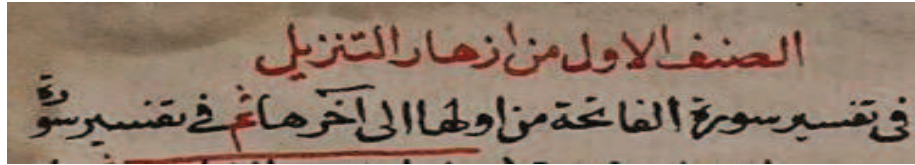 الصنف الاول من ازهار التنزيل
فى تفسير سورة الفاتحة من اولها الى آخرها ثم فے تفسير سورة